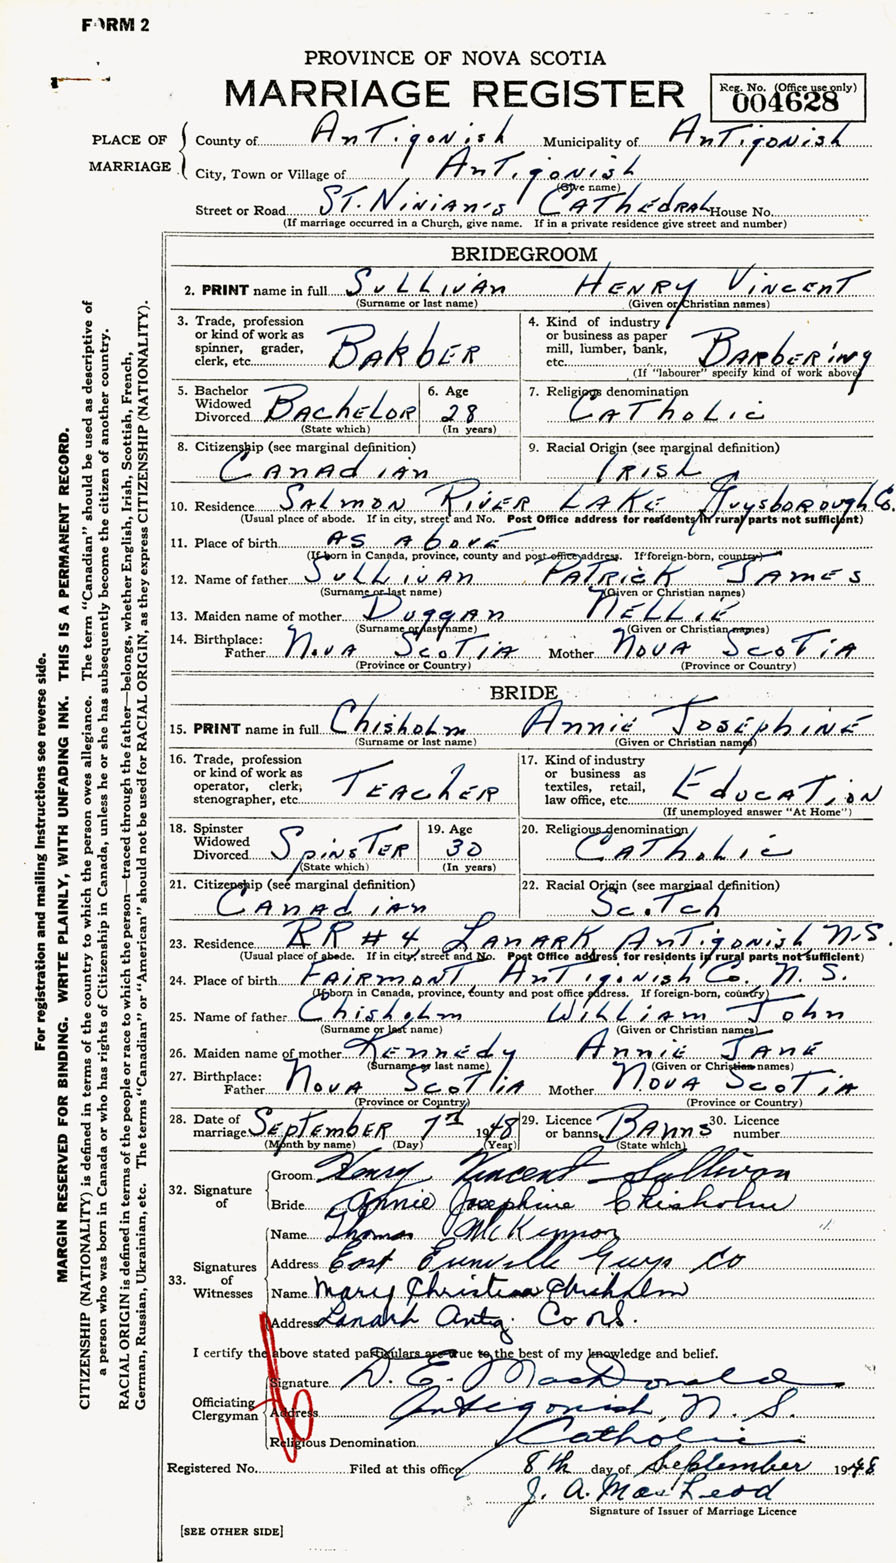 FORM 2
PROVINCE OF NOVA SCOTIA
MARRIAGE REGISTER
Reg. No. (Office use only)
004628
PLACE OF MARRIAGE
County of Antigonish Municipality of Antigonish
City, Town or Village of Antigonish
(Give name)
Street or Road St. Ninian's Cathedral House No.
(If marriage occurred in a Church, give name. If in a private residence give street and number)
BRIDEGROOM
2. PRINT name in full Sullivan Henry Vincent
(Surname or last name) (Given or Christian names)
3. Trade, profession or kind of work as spinner, grader, clerk, etc. Barber
4. Kind of industry or business as paper mill, lumber, bank, etc. Barbering
(If "labourer" specify kind of work above)
5. Bachelor Widowed Divorced Bachelor
(State which)
6. Age 28
(In years)
7. Religious denomination Catholic
8. Citizenship (see marginal definition) Canadian
9. Racial Origin (see marginal definition) Irish
10. Residence Salmon River Lake Guysborough Co.
(Usual place of abode. If in city, street and No. Post Office address for residents in rural parts not sufficient)
11. Place of birth as above
(If born in Canada, province, county and post office address. If foreign-born, country)
12. Name of father Sullivan Patrick James
(Surname or last name) (Given or Christian names)
13. Maiden name of mother Duggan Nellie
(Surname or last name) (Given or Christian names)
14. Birthplace: Father Nova Scotia Mother Nova Scotia
(Province or Country) (Province or Country)
BRIDE
15. PRINT name in full Chisholm Annie Josephine
(Surname or last name) (Given or Christian names)
16. Trade, profession or kind of work as operator, clerk, stenographer, etc. Teacher
17. Kind of industry or business as textiles, retail, law office, etc. Education
(If unemployed answer "At Home")
18. Spinster Widowed Divorced Spinster
(State which)
19. Age 30
(In years)
20. Religious denomination Catholic
21. Citizenship (see marginal definition) Canadian
22. Racial Origin (see marginal definition) Scotch
23. Residence RR #4 Lanark Antigonish N.S.
(Usual place of abode. If in city, street and No. Post Office address for residents in rural parts not sufficient)
24. Place of birth Fairmont Antigonish Co. N.S.
(If born in Canada, province, county and post office address. If foreign-born, country)
25. Name of father Chisholm William John
(Surname or last name) (Given or Christian names)
26. Maiden name of mother Kennedy Annie Jane
(Surname or last name) (Given or Christian names)
27. Birthplace: Father Nova Scotia Mother Nova Scotia
(Province or Country) (Province or Country)
28. Date of marriage September 7th 1948
(Month by name) (Day) (Year)
29. Licence or banns Banns
(State which)
30. Licence number
32. Signature of
Groom Henry Vincent Sullivan
Bride Annie Josephine Chisholm
33. Signatures of Witnesses
Name Thomas McKinnon
Address East Guys Co
Name Mary Christina Chisholm
Address Lanark Antig. Co N.S.
I certify the above stated particulars are true to the best of my knowledge and belief.
Officiating Clergyman
Signature D. E. MacDonald
Address Antigonish, N. S.
Religious Denomination Catholic
Registered No. Filed at this office 8th day of September 1948
J. A. MacLeod
Signature of Issuer of Marriage Licence
[SEE OTHER SIDE]
For registration and mailing instructions see reverse side.
MARGIN RESERVED FOR BINDING. WRITE PLAINLY, WITH UNFADING INK. THIS IS A PERMANENT RECORD.
CITIZENSHIP (NATIONALITY) is defined in terms of the country to which the person owes allegiance. The term "Canadian" should be used as descriptive of
a person who was born in Canada or who has rights of Citizenship in Canada, unless he or she has subsequently become the citizen of another country.
RACIAL ORIGIN is defined in terms of the people or race to which the person—traced through the father—belongs, whether English, Irish, Scottish, French,
German, Russian, Ukrainian, etc. The terms "Canadian" or "American" should not be used for RACIAL ORIGIN, as they express CITIZENSHIP (NATIONALITY).